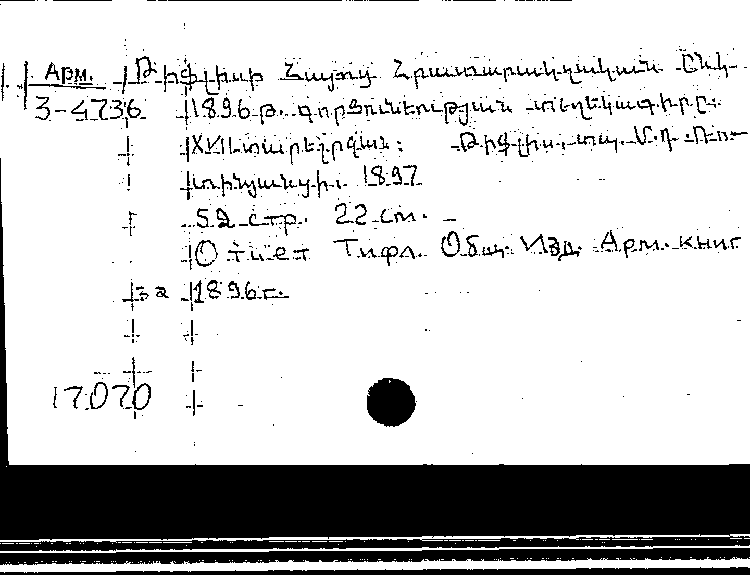 Арм. Թիֆլիսի Հայոց Հրատարակչական Ընկ-
3-4736 1896 թ. գործունեության տեղեկագիրը.
XVII տարեշրջան: Թիֆլիս, տպ. Մ. Դ. Ռո-
տինյանցի. 1897
52 стр. 22 см. –
Отчет Тифл. Общ. Изд. Арм. книг
за 1896 г.
17.070